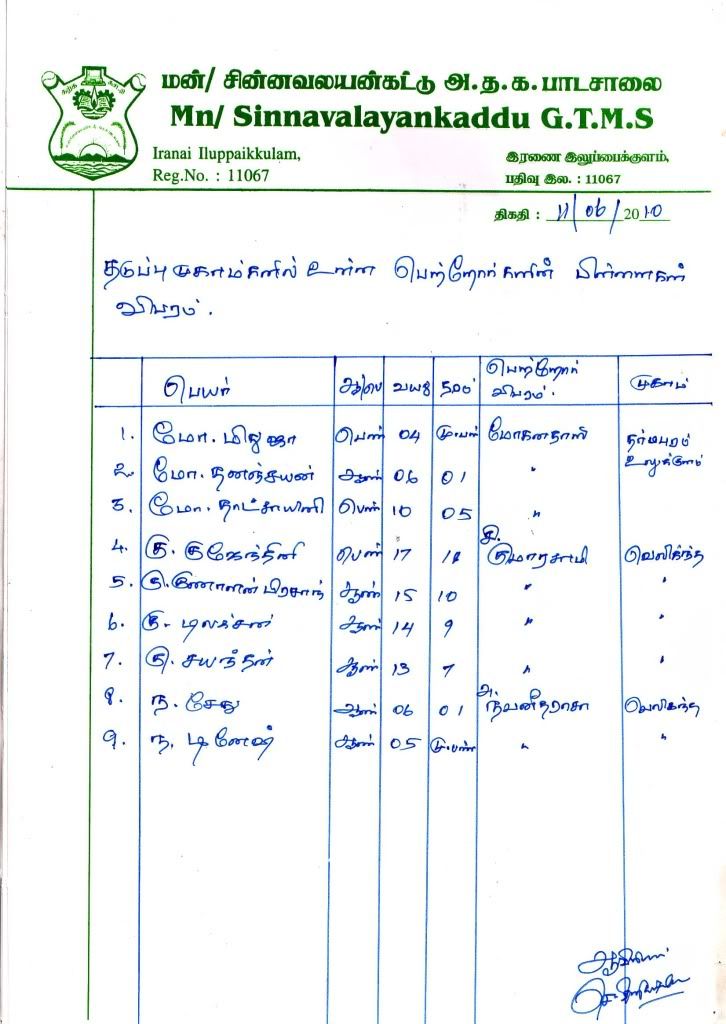 மன்/ சின்னவலயன்கட்டு அ.த.க.பாடசாலை
Mn/ Sinnavalayankaddu G.T.M.S
Iranai Iluppaikkulam,
இரணை இலுப்பைக்குளம்,
Reg.No. : 11067
பதிவு இல. : 11067
திகதி : 11/06/2010
தடுப்பு முகாம்களில் உள்ள பெற்றோர்களின் பிள்ளைகள்
விபரம்.
பெயர் ஆ/பெ வயது தரம் பெற்றோர் விபரம். முகாம்
1. மோ. பெண் 04 மு.பள் மோகனதாஸ் தர்மபுரம்
2. மோ. தனஞ்சயன் ஆண் 06 01 "
3. மோ. தாட்சாயினி பெண் 10 05 "
4. கு. குஜேந்தினி பெண் 17 குமாரசாமி வெலிகந்த
5. கு. பிரசாந் ஆண் 15 10 " "
6. கு. டிலக்சன் ஆண் 14 9 " "
7. கு. சயந்தன் ஆண் 13 7 " "
8. ந. சேது ஆண் 06 01 அ. நவனீதராசா வெலிகந்த
9. ந. டினேஷ் ஆண் 05 மு.பள் " "